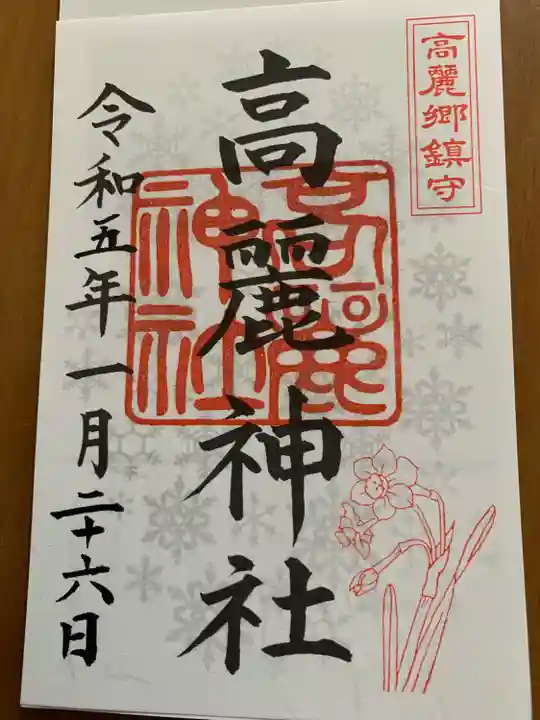 高麗郷鎮守
高麗神社
高麗神社
令和五年一月二十六日